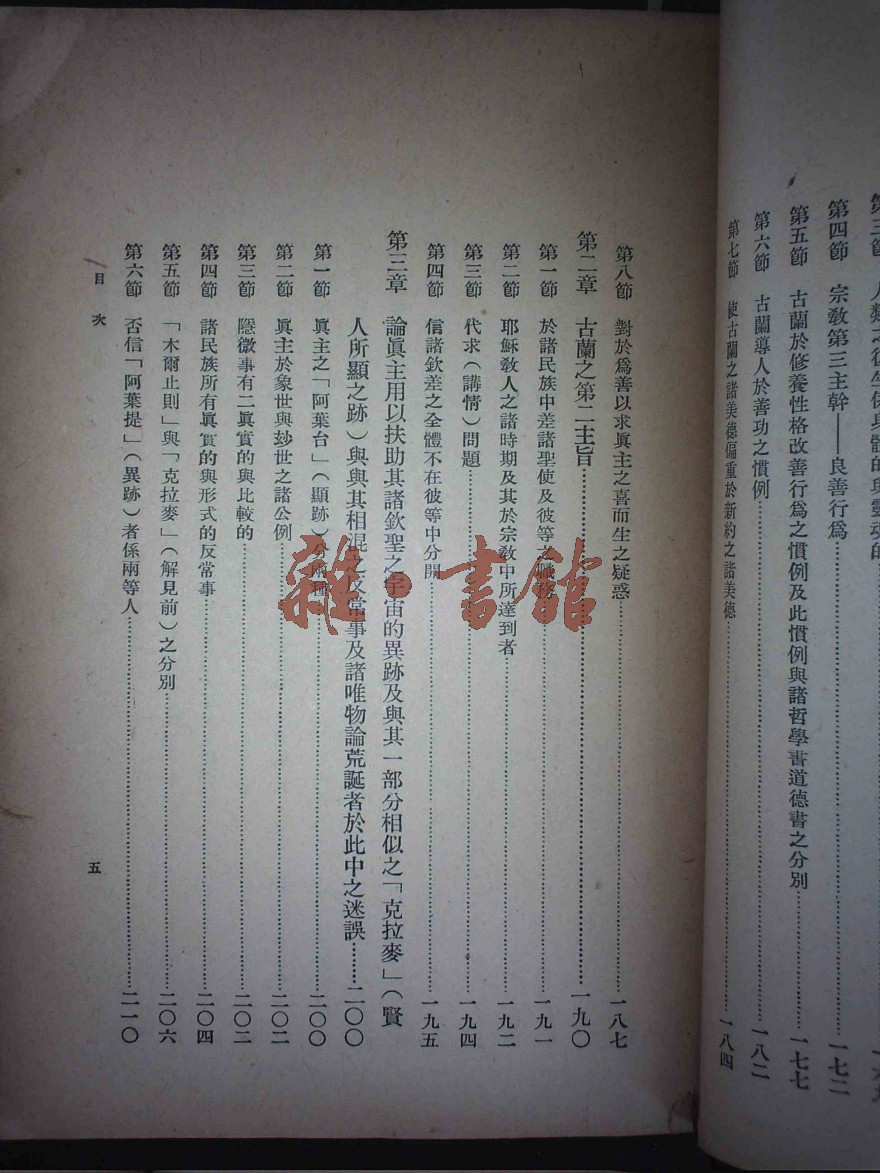 第四節　宗敎第三主幹——良善行爲……一七二
第五節　古蘭於修養性格改善行爲之慣例及此慣例與諸哲學書道德書之分別……一七七
第六節　古蘭導人於善功之慣例……一八二
第七節　使古蘭之諸美德偏重於新約之諸美德……一八四
第八節　對於爲善以求眞主之喜而生之疑惑……一八七
第二章　古蘭之第二主旨……一九〇
第一節　於諸民族中差諸聖使及彼等之職務……一九一
第二節　耶穌敎人之諸時期及其於宗敎中所達到者……一九二
第三節　代求（講情）問題……一九四
第四節　信諸欽差之全體不在彼等中分開……一九五
第三章　論眞主用以扶助其諸欽聖之宇宙的異跡及與其一部分相似之「克拉麥」（賢
人所顯之跡）與與其相混之反常事及諸唯物論荒誕者於此中之迷誤……二〇〇
第一節　眞主之「阿葉台」（顯跡）分兩種……二〇〇
第二節　眞主於象世與玅世之諸公例……二〇二
第三節　隱微事有二眞實的與比較的……二〇二
第四節　諸民族所有眞實的與形式的反常事……二〇四
第五節　「木爾止則」與「克拉麥」（解見前）之分別……二〇六
第六節　否信「阿葉提」（異跡）者係兩等人……二一〇
目次
五
雜·書館